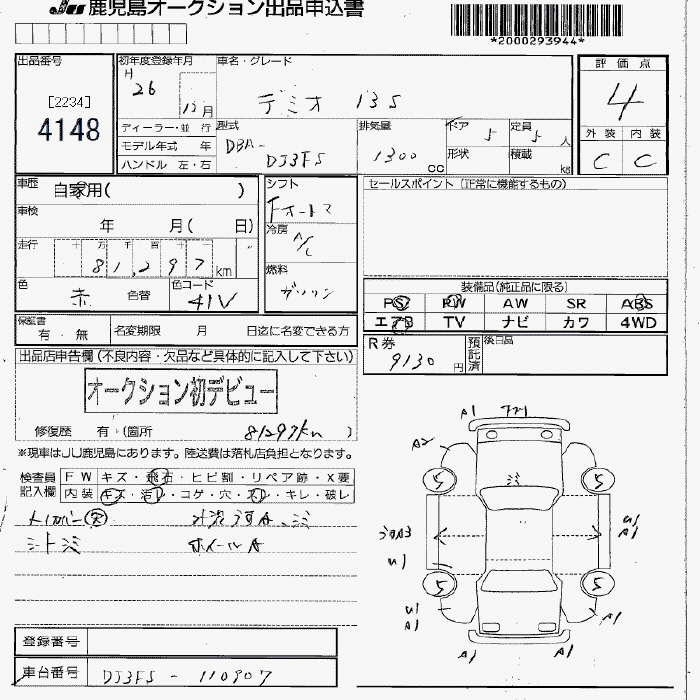 JU 鹿児島オークション出品申込書
*2000293944*
出品番号
[2234]
4148
初年度登録年月
H 26 12月
車名・グレード
デミオ 13S
評価点
4
外装 内装
C C
ディーラー・並行
モデル年式 年
ハンドル 左・右
型式
DBA-DJ3FS
排気量
1300 cc
ドア 5
形状
定員 5人
積載 kg
車歴 自家用( )
シフト
Fオートマ
セールスポイント(正常に機能するもの)
車検 年 月( 日)
冷房
A/C
走行 十万千百十
81,297 km
燃料
ガソリン
色 赤 色替
色コード
41V
装備品(純正品に限る)
PS PW AW SR ABS
エアB TV ナビ カワ 4WD
保証書
有・無
名変期限 月 日迄に名変できる方
R券
9130円
預託済
後日品
出品店申告欄(不良内容・欠品など具体的に記入して下さい)
オークション初デビュー
修復歴 有・(箇所 81297km )
※現車はJU鹿児島にあります。陸送費は落札店負担となります。
検査員
記入欄
FW キズ・飛石・ヒビ割・リペア跡・X要
内装 キズ・汚レ・コゲ・穴・スレ・キレ・破レ
シートシミ
ホイールA
A1
A2
シミ
5
5
U1
A1
U1
5
5
U1
A1
A1
A1
A1
登録番号
車台番号 DJ3FS - 110907